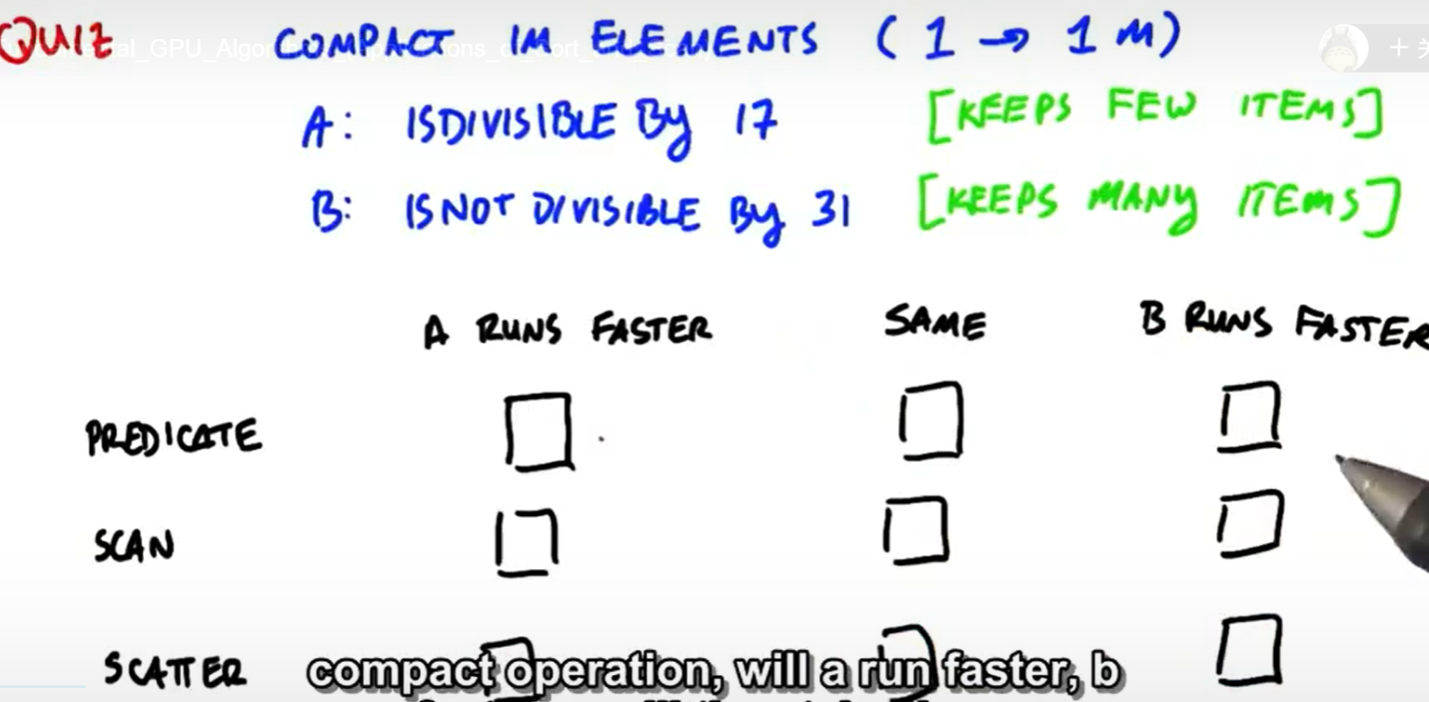 QUIZ COMPACT 1M ELEMENTS (1 → 1M)
A: ISDIVISIBLE By 17 [KEEPS FEW ITEMS]
B: IS NOT DIVISIBLE By 31 [KEEPS MANY ITEMS]
A RUNS FASTER SAME B RUNS FASTER
PREDICATE
SCAN
SCATTER
compact operation, will a run faster, b